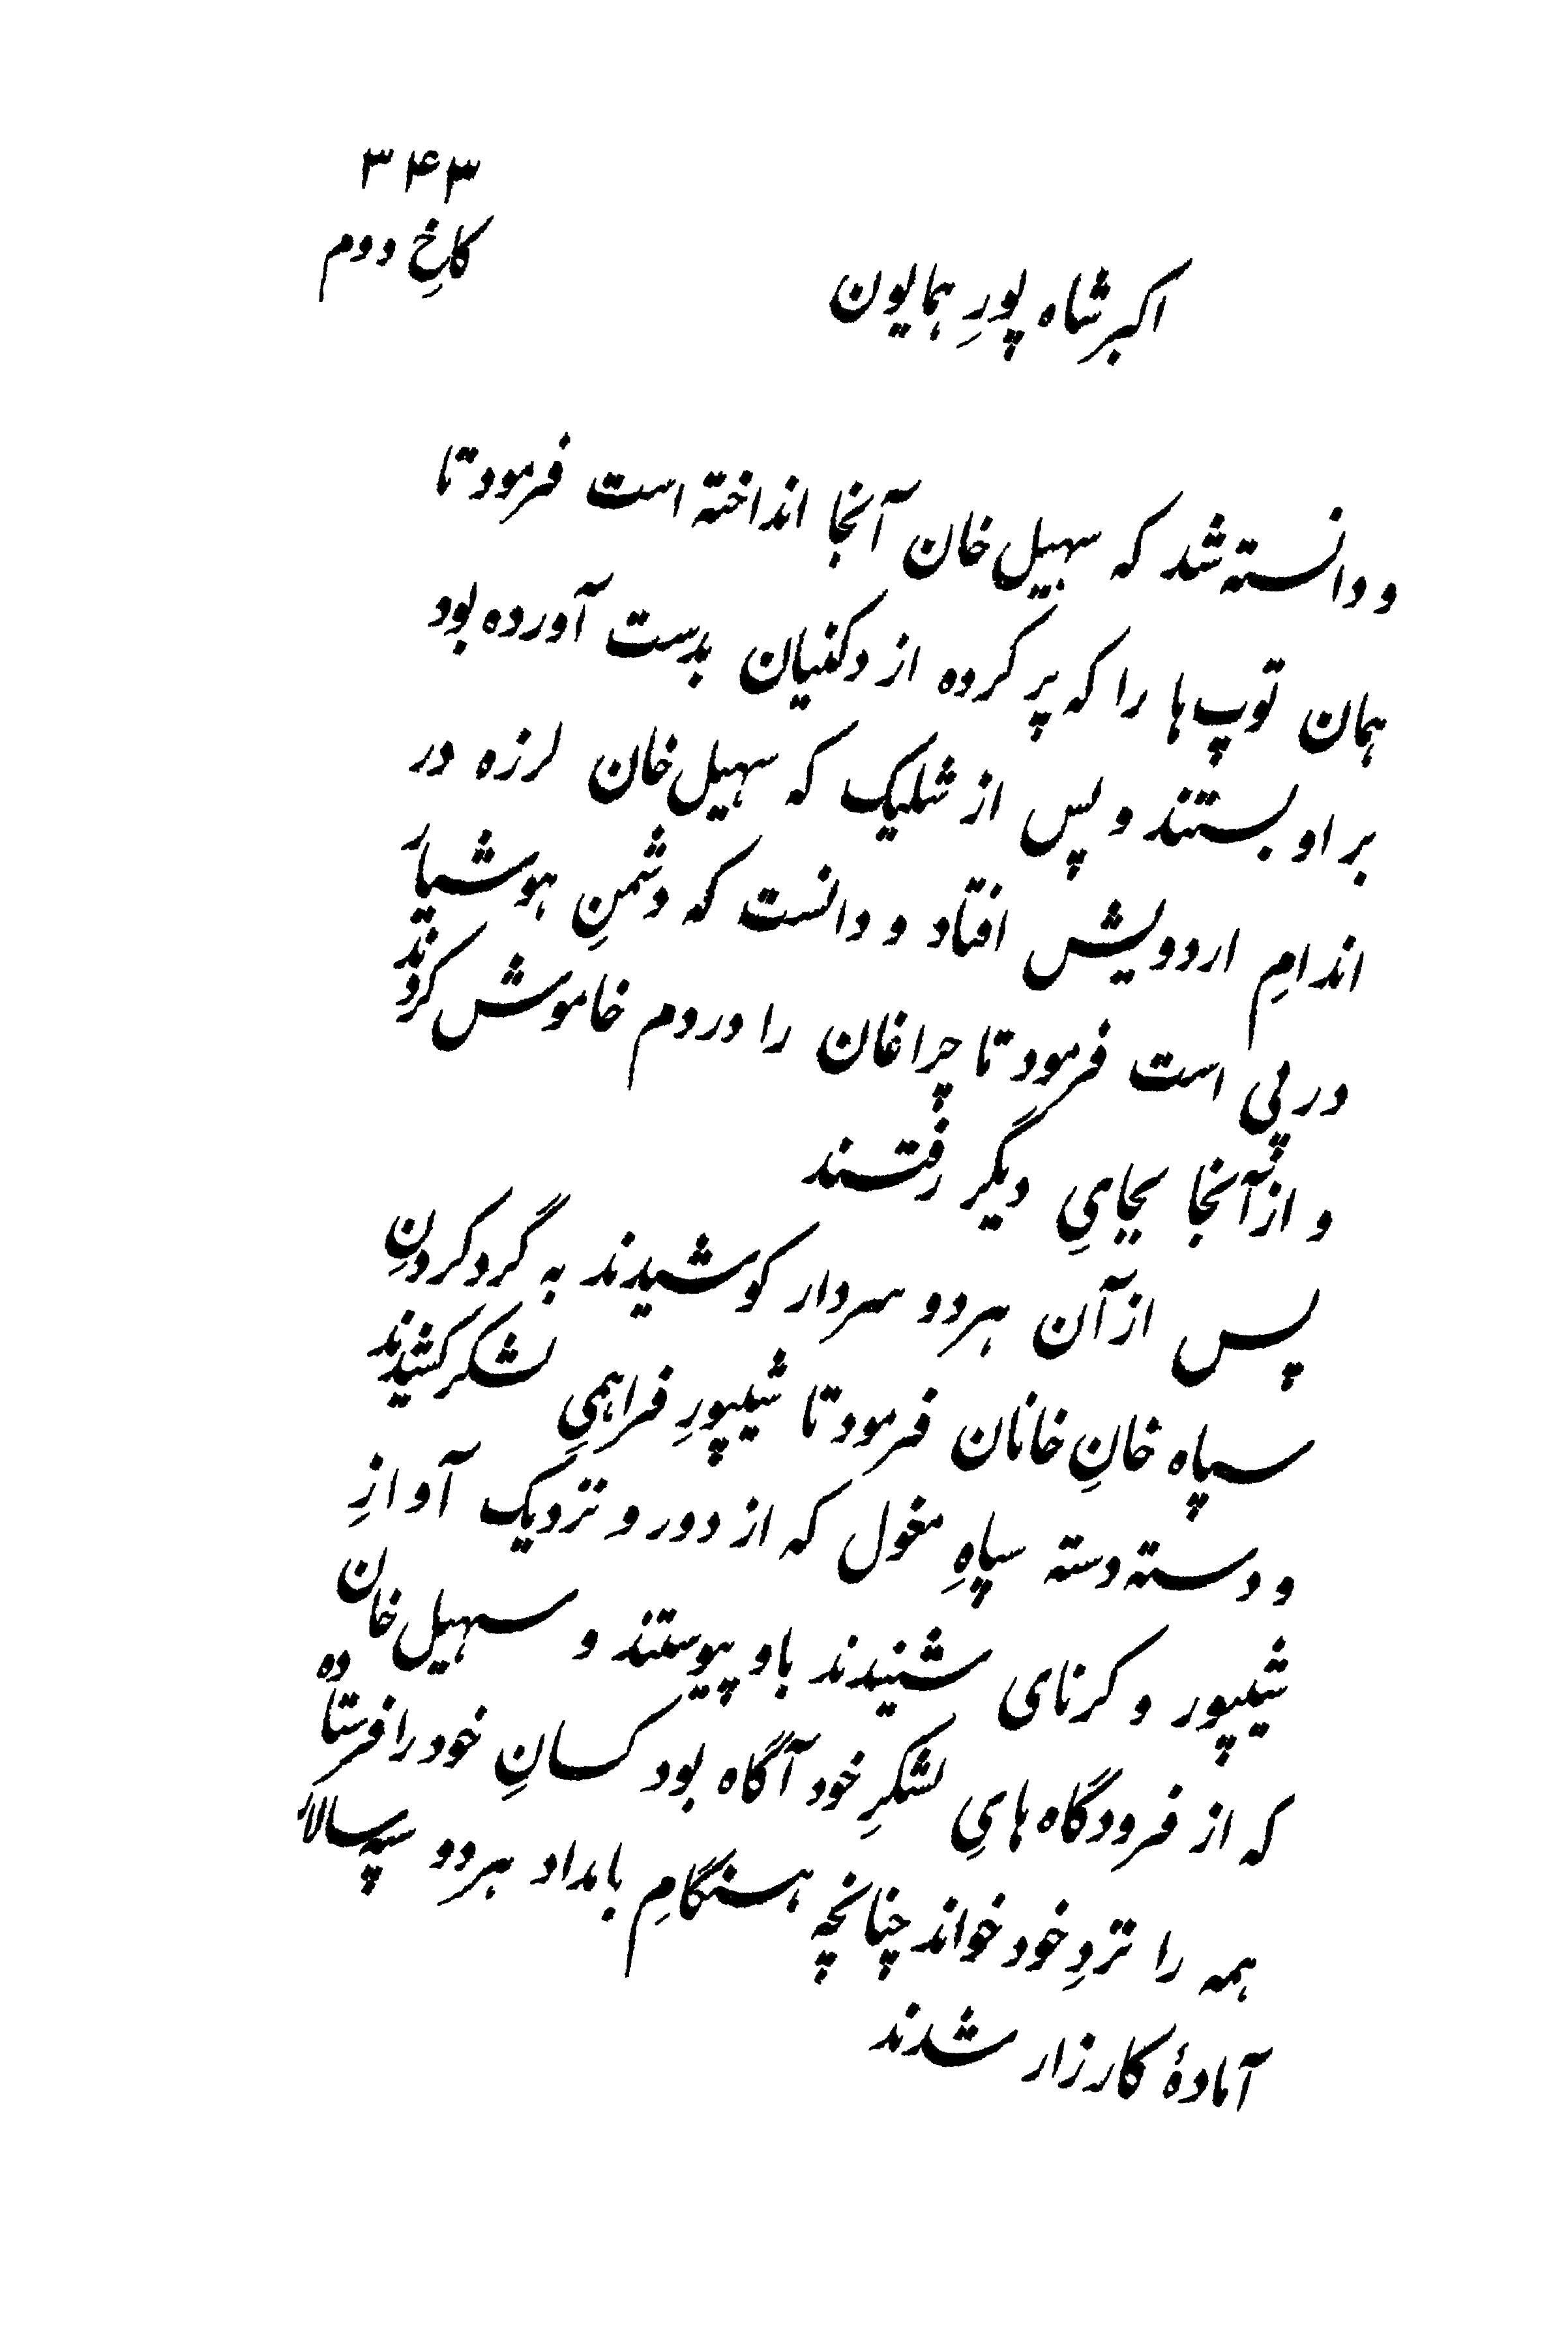 ۳۴۳
کاخِ دوم
اکبر شاه پورِ همایون
و دانسته شد که سهیل خان آنجا انداخته است فرمود تا
همان توپ‌ها را که پر کرده از دکنیان بدست آورده بود
بر او بستند و پس از شلیک که سهیل خان لرزه در
اندامِ اردویش افتاد و دانست که دشمنِ هوشیار
در پی است فرمود تا چراغان را در دم خاموش کردند
و از آنجا بجایِ دیگر رفتند
پس از آن هر دو سردار کوشیدند به گرد کردنِ
سپاه خانِ خانان فرمود تا شیپورِ فراهمیِ لشکر کشیدند
و دسته دسته سپاهِ مغول که از دور و نزدیک آوازِ
شیپور و کرنای شنیدند باو پیوستند و سهیل خان
که از فرودگاه‌هایِ لشکرِ خود آگاه بود کسانِ خود را فرستاده
همه را نزدِ خود خواند چنانچه هنگامِ بامداد هر دو سپه‌سالار
آمادهٔ کارزار شدند